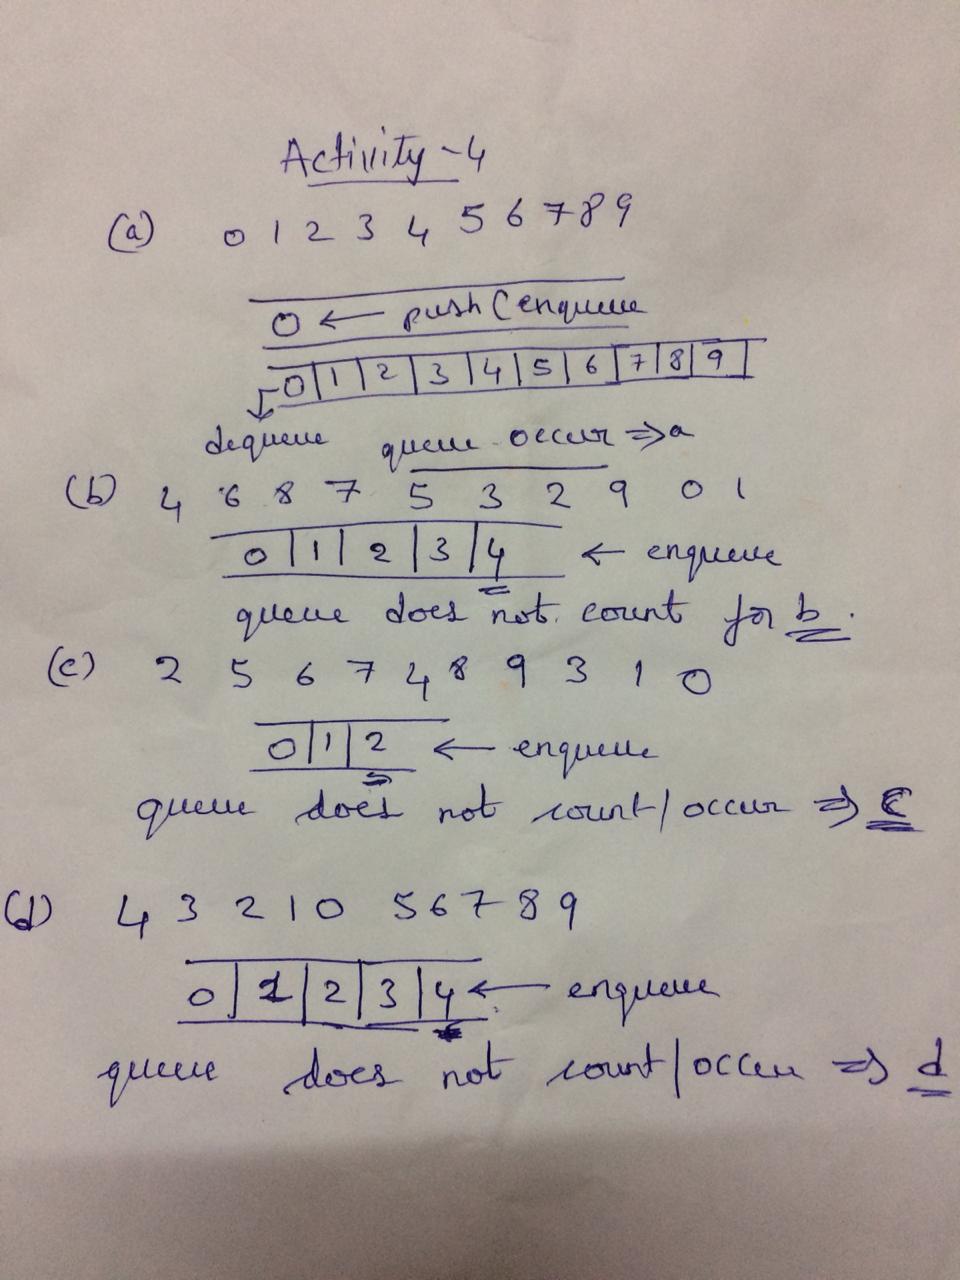 Activity-4
(a) 0 1 2 3 4 5 6 7 8 9
0 ← push (enqueue
0 1 2 3 4 5 6 7 8 9
dequeue queue occur ⇒ a
(b) 4 6 8 7 5 3 2 9 0 1
0 1 2 3 4 ← enqueue
queue does not count for b.
(c) 2 5 6 7 4 8 9 3 1 0
0 1 2 ← enqueue
queue does not count/occur ⇒ c
(d) 4 3 2 1 0 5 6 7 8 9
0 1 2 3 4 ← enqueue
queue does not count/occur ⇒ d